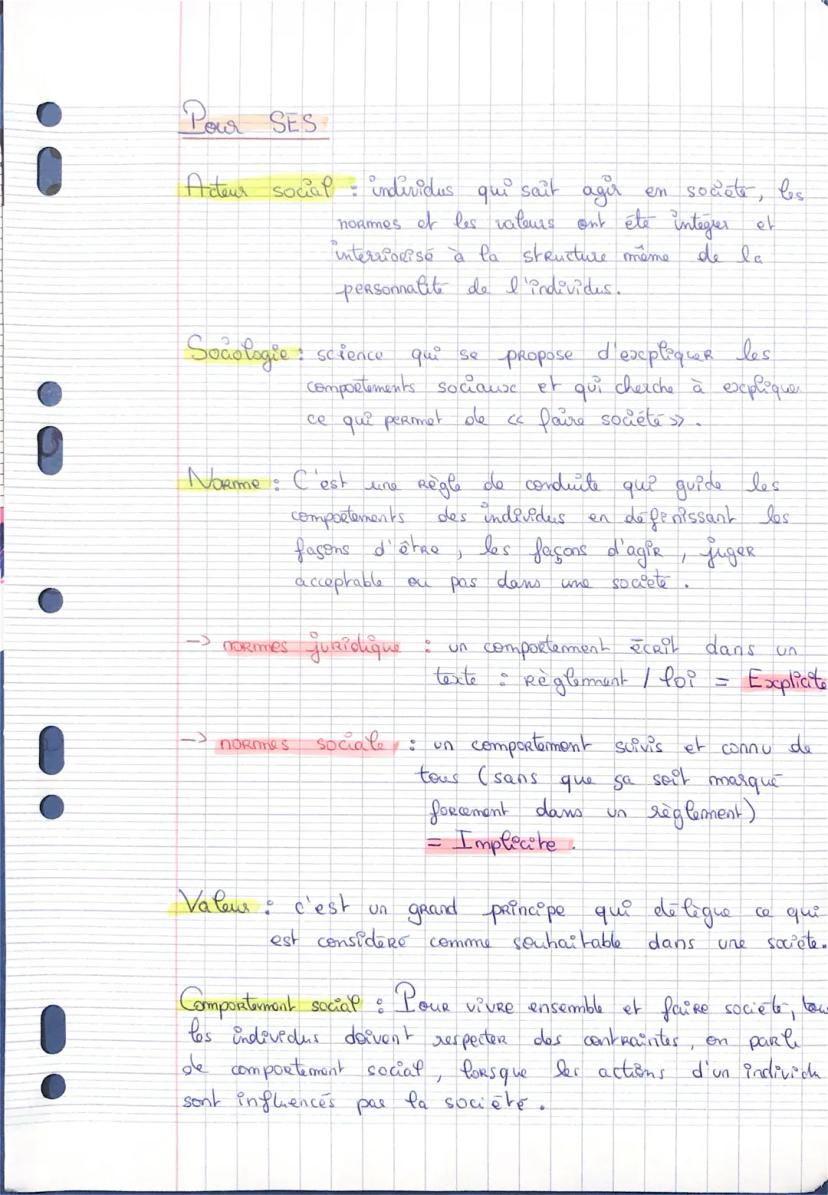 Pour SES
Acteur social : individus qui sait agir en société, les
normes et les valeurs ont été intégrer et
interriorisé à la structure même de la
personnalité de l'individus.
Sociologie : science qui se propose d'expliquer les
comportements sociaux et qui cherche à explique
ce qui permet de << faire société >>.
Norme : C'est une règle de conduite qui guide les
comportements des individus en définissant les
façons d'être, les façons d'agir, juger
acceptable ou pas dans une société.
-> normes juridique : un comportement écrit dans un
texte : règlement / loi = Explicite
-> normes sociale : un comportement suivis et connu de
tous (sans que sa soit marqué
forcement dans un règlement)
= Implicite.
Valeur : c'est un grand principe qui délègue ce qui
est considéré comme souhaitable dans une société.
Comportement social : Pour vivre ensemble et faire société, tou
les individus doivent respecter des contraintes, on parle
de comportement social, lorsque les actions d'un individu
sont influencés par la société.